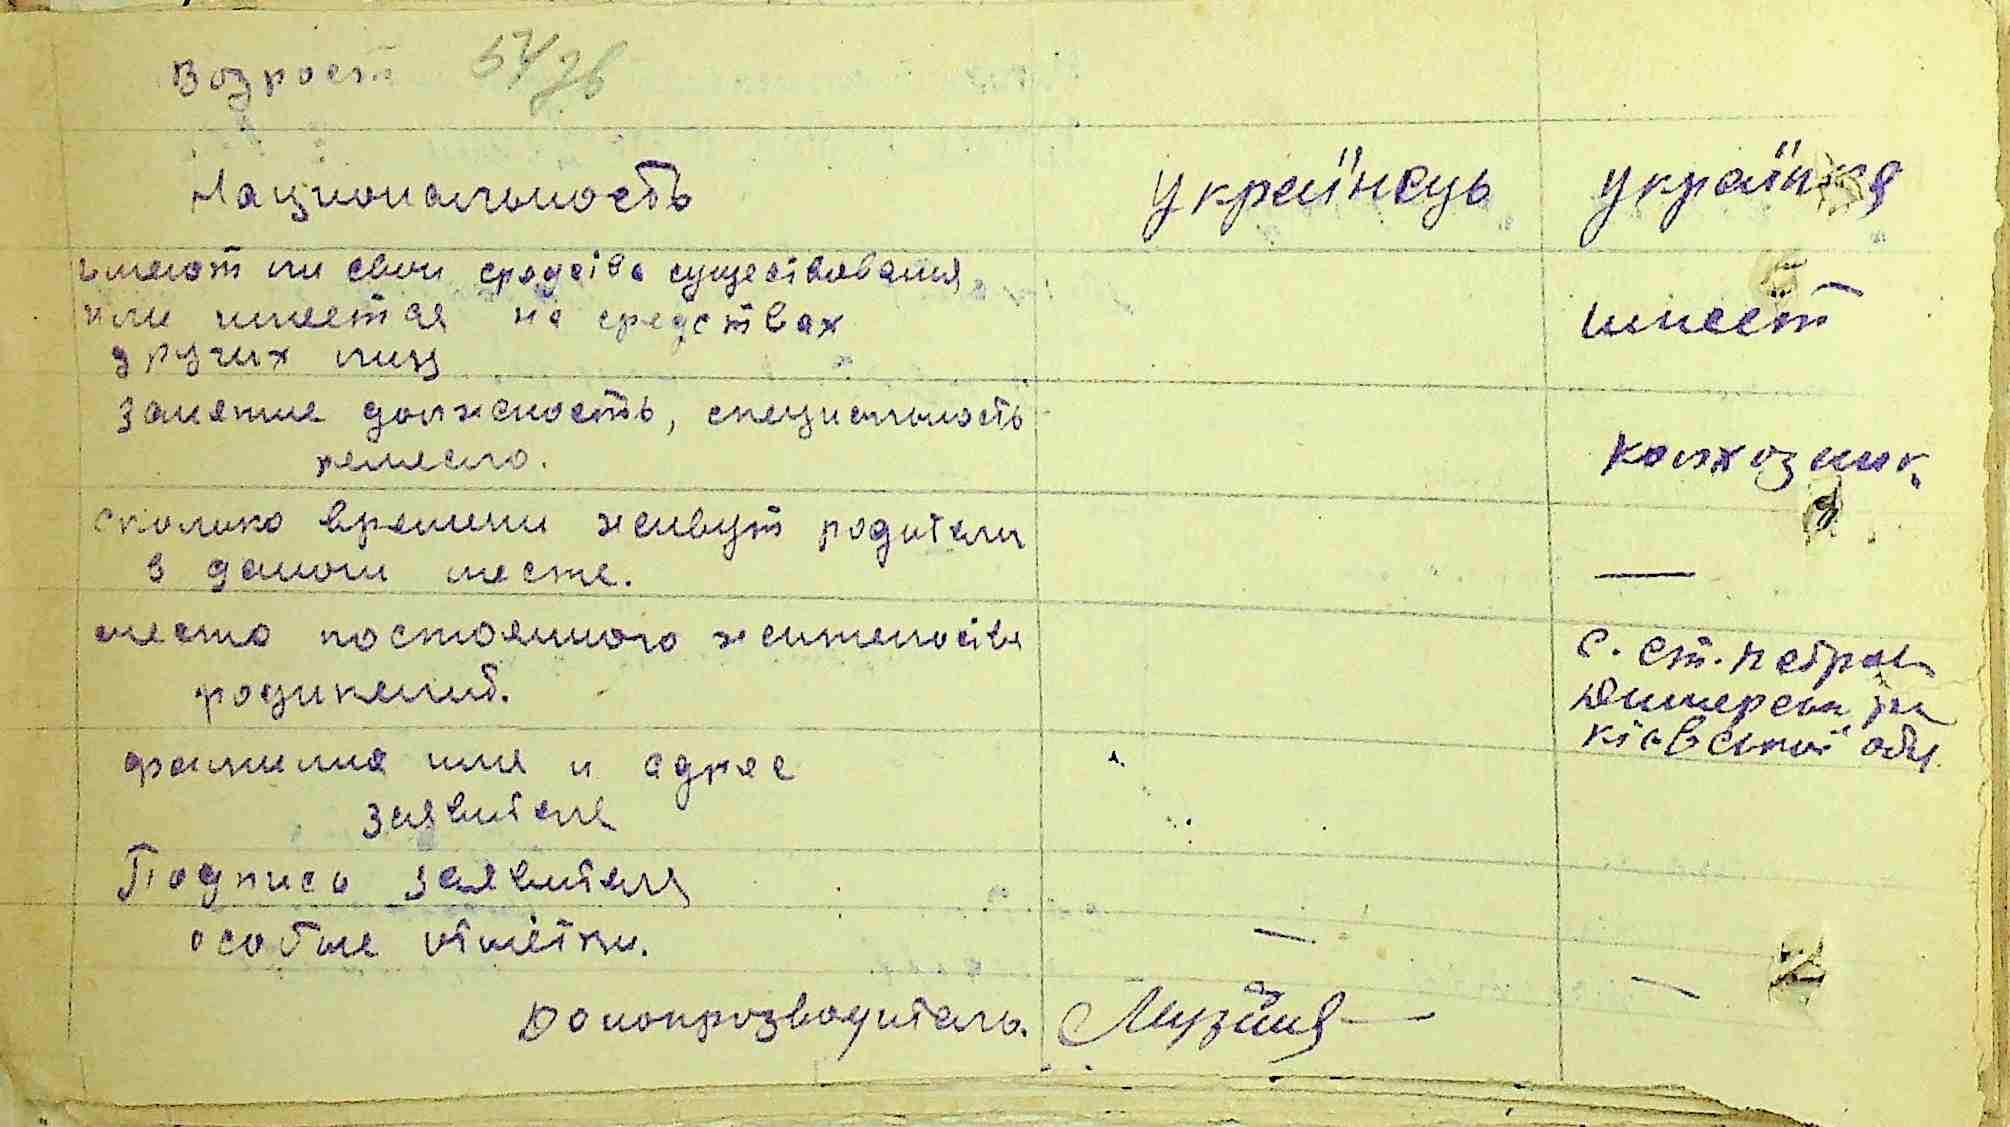 Возраст 57 зв
Национальность Украïнець Украïнка
имеют ли свои средства существования
или имеется на средствах имеет
других лиц
Занятие должность, специальность
ремесло. колхозник
сколько времени живут родители
в даном месте. —
место постоянного жительства с. Ст. Петрів
родителей. Димерськ рн
Київськоï обл
фамилия имя и адрес
заявителя
Подпись заявителя
особые отметки. — —
Делопрозводитель.